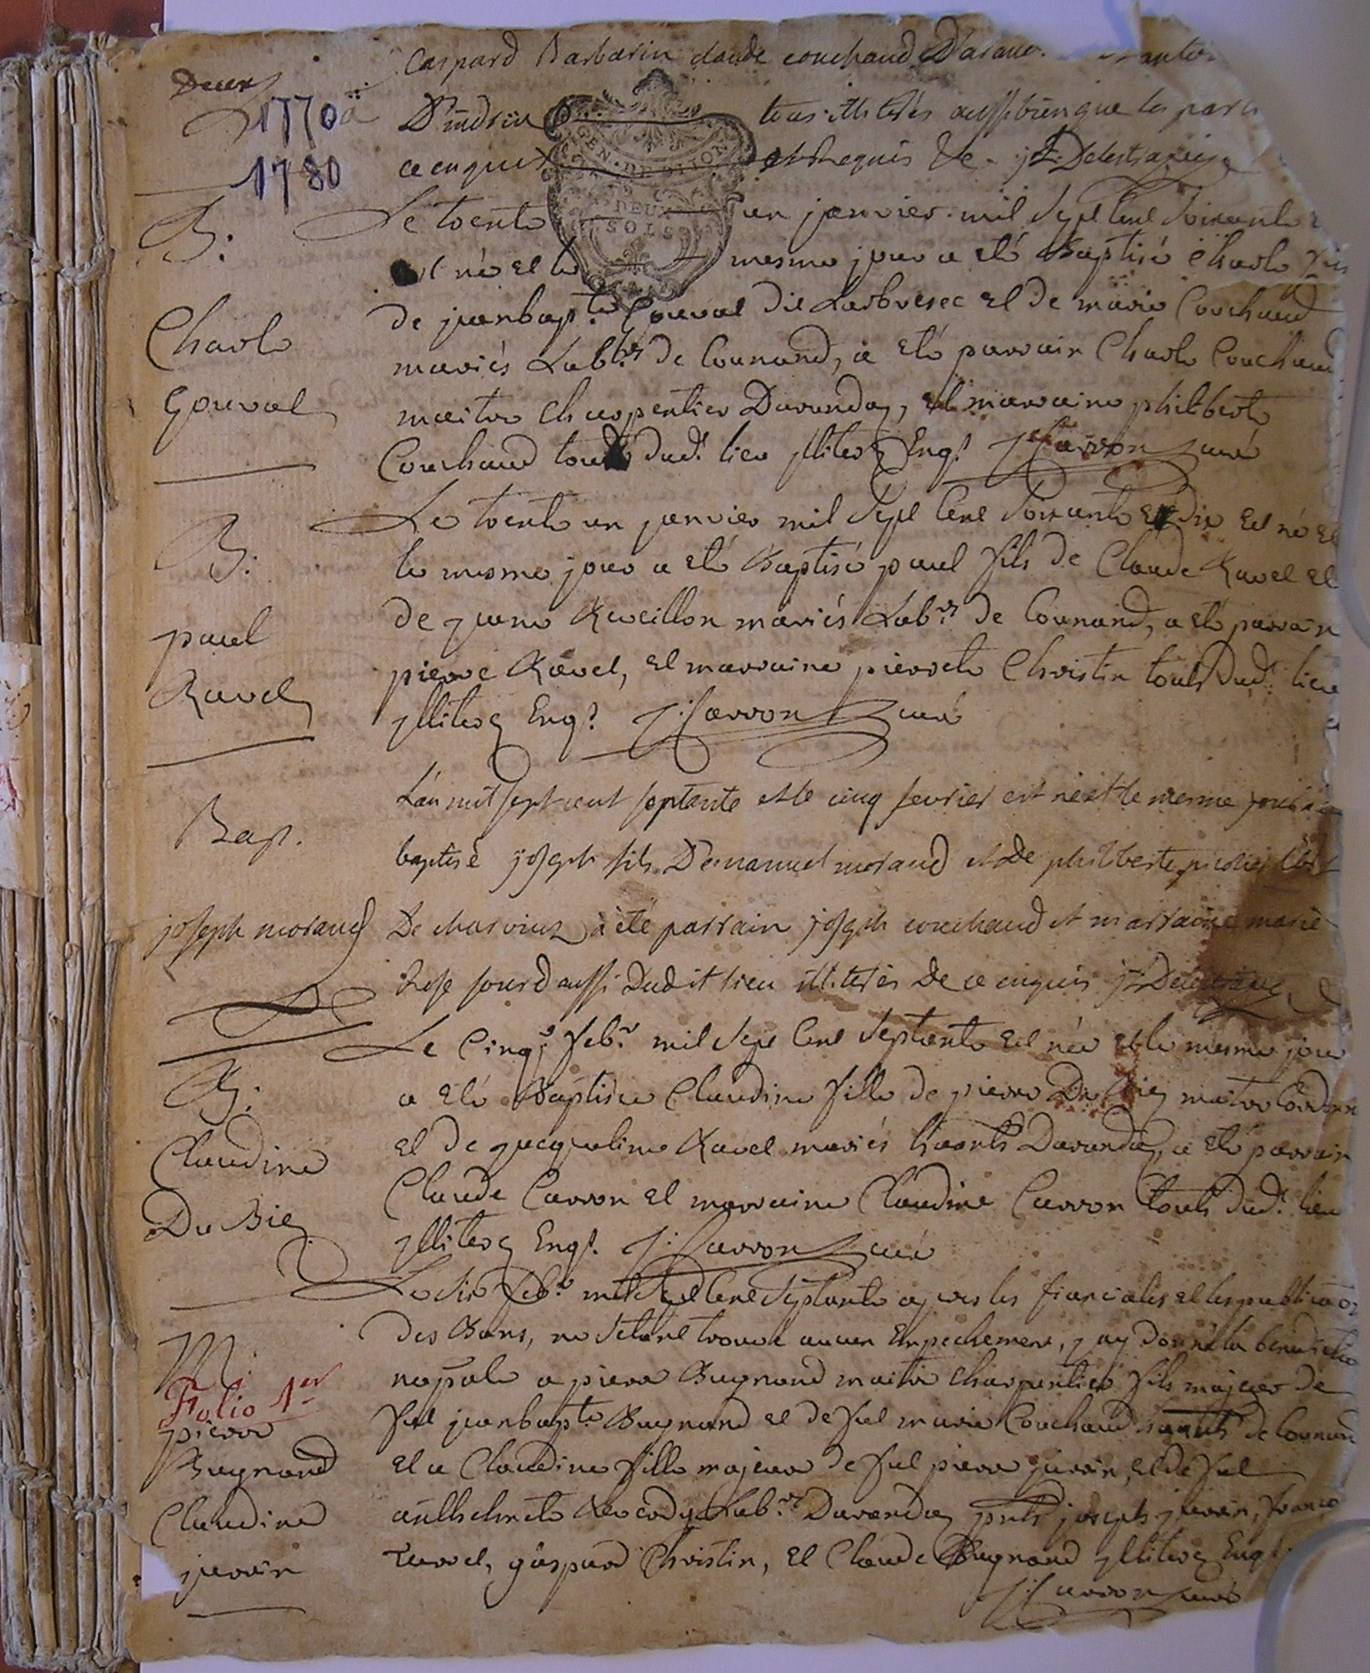 Gaspard Barbarin claude couchaud
Deux
1770 à
1780
tous illiterés aussi bien que les
ce enquis et Requis
GEN. DE DIJON
DEUX
SOLS
B:
Charle
Gouval
Le trente un janvier mil Sept Cent Soixante
est né et le mesme jour a eté Baptisé Charle fils
de jeanbapt.te Gouval dit Larbresec et de marie Couchaud
mariés Lab.rs de Counand, a eté parrain Charle Couchaud
maitre Charpentier Davanday, et marraine philiberte
Couchaud touts dud.t lieu illiterez Enq.s J: Carron Curé
B:
paul
Ravel
Le trente un janvier mil Sept Cent Soixante et dix est né et
le mesme jour a eté Baptisé paul fils de Claude Ravel et
de jeanne Reveillon mariés Lab.rs de Counand, a eté parrain
pierre Ravel, et marraine pierrete Christin touts dud.t lieu
illiterez Enq.s J: Carron Curé
Bap.
joseph morand
L'an mil sept cent septante et le cinq fevrier est né et le mesme jour a
baptisé joseph fils D'emanuel morand et de philiberte
De charvieux a été parrain joseph couchaud et marraine marie
Rose jourd aussi Dudit lieu illiterés de ce enquis
B:
Claudine
Du Biez
Le Cinq.e feb.r mil Sept Cent Septante est née et le mesme jour
a eté Baptisée Claudine fille de pierre Du Biez maitre
et de jacqueline Ravel mariés Davanday, a eté parrain
Claude Carron et marraine Claudine Carron touts dud.t lieu
illiterez Enq.s J: Carron Curé
M:
Folio 1er
pierre
Bugnand
Claudine
juvein
Le dix feb.r mil Sept Cent Septante apres les fiancailes et les publica
des Bans, ne Setant trouvé aucun Empechement, j ay donné la benedictio
nuptiale a pierre Bugnand maitre Charpentier fils majeur de
fut jeanbapt.te Bugnand et de fut marie Couchaud de Counand
et a Claudine fille majeure de fut pierre juvein, et de fut
anthelmete Lab.rs Davanday joseph juvein,
Ravel, gaspard Christin, et Claude Bugnand illiterez Enq.s
J: Carron Curé